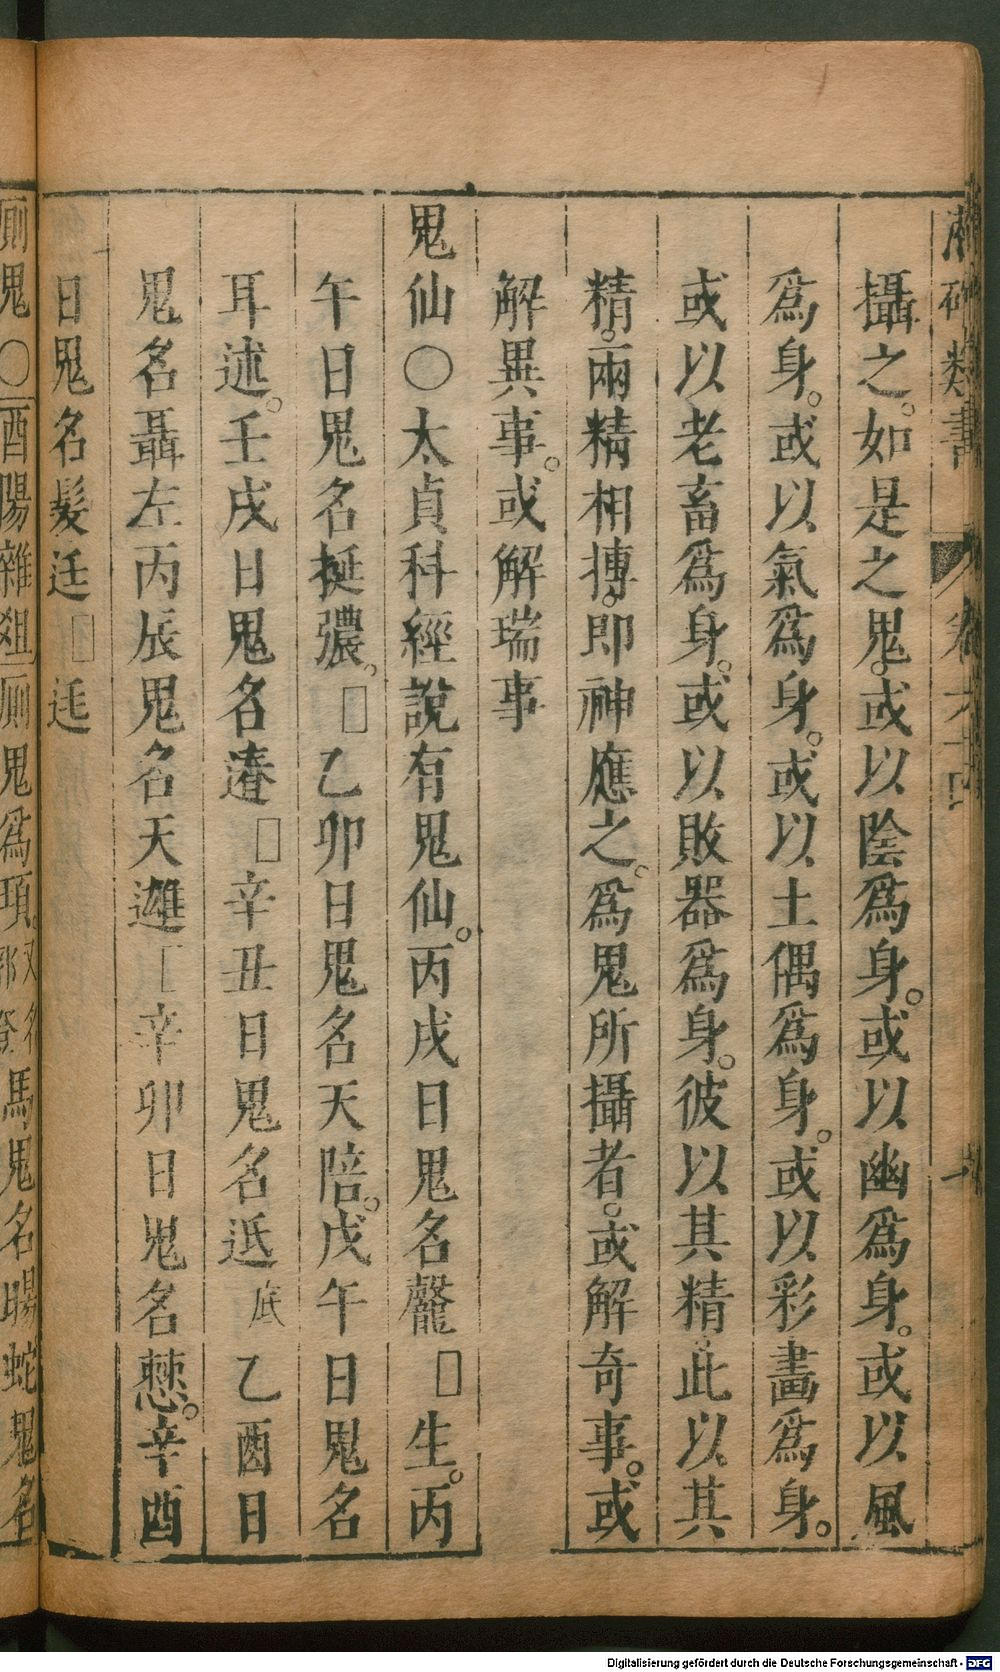 攝之。如是之鬼。或以陰爲身。或以幽爲身。或以風
爲身。或以氣爲身。或以土偶爲身。或以彩畫爲身。
或以老畜爲身。或以敗器爲身。彼以其精此以其
精。兩精相搏。即神應之。爲鬼所攝者。或解奇事。或
解異事。或解瑞事
鬼仙〇太貞科經說有鬼仙。丙戌日鬼名 □生。丙
午日鬼名挻㺜。□乙卯日鬼名天陪。戊午日鬼名
耳述。壬戌日鬼名 □辛丑日鬼名 底 乙酉日
鬼名聶左丙辰鬼名天 辛卯日鬼名 。辛酉
日鬼名髮廷□廷
廁鬼〇酉陽雜俎廁鬼爲頊 馬鬼名賜蛇鬼名
Digitalisierung gefördert durch die Deutsche Forschungsgemeinschaft - DFG